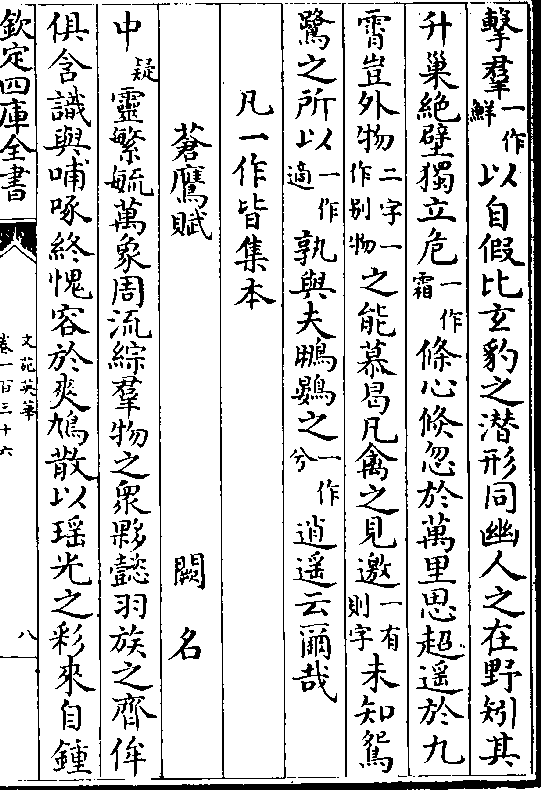 擊羣一作鮮以自假比玄豹之潜形同幽人之在野矧其
升巢絶壁獨立危一作霜條心倐忽於萬里思超遥於九
霄豈外物二字一作别物之能慕曷凡禽之見邀一有則字未知鴛
鷺之所以一作適孰與夫鵬鷃之一作兮逍遥云爾哉
凡一作皆集本
蒼鷹賦 闕名
中疑靈繁毓萬象周流綜羣物之衆夥懿羽族之齊侔
俱含識與哺啄終愧容於爽鳩散以瑶光之彩來自鍾
欽定四庫全書
文苑英華
卷一百三十六
八